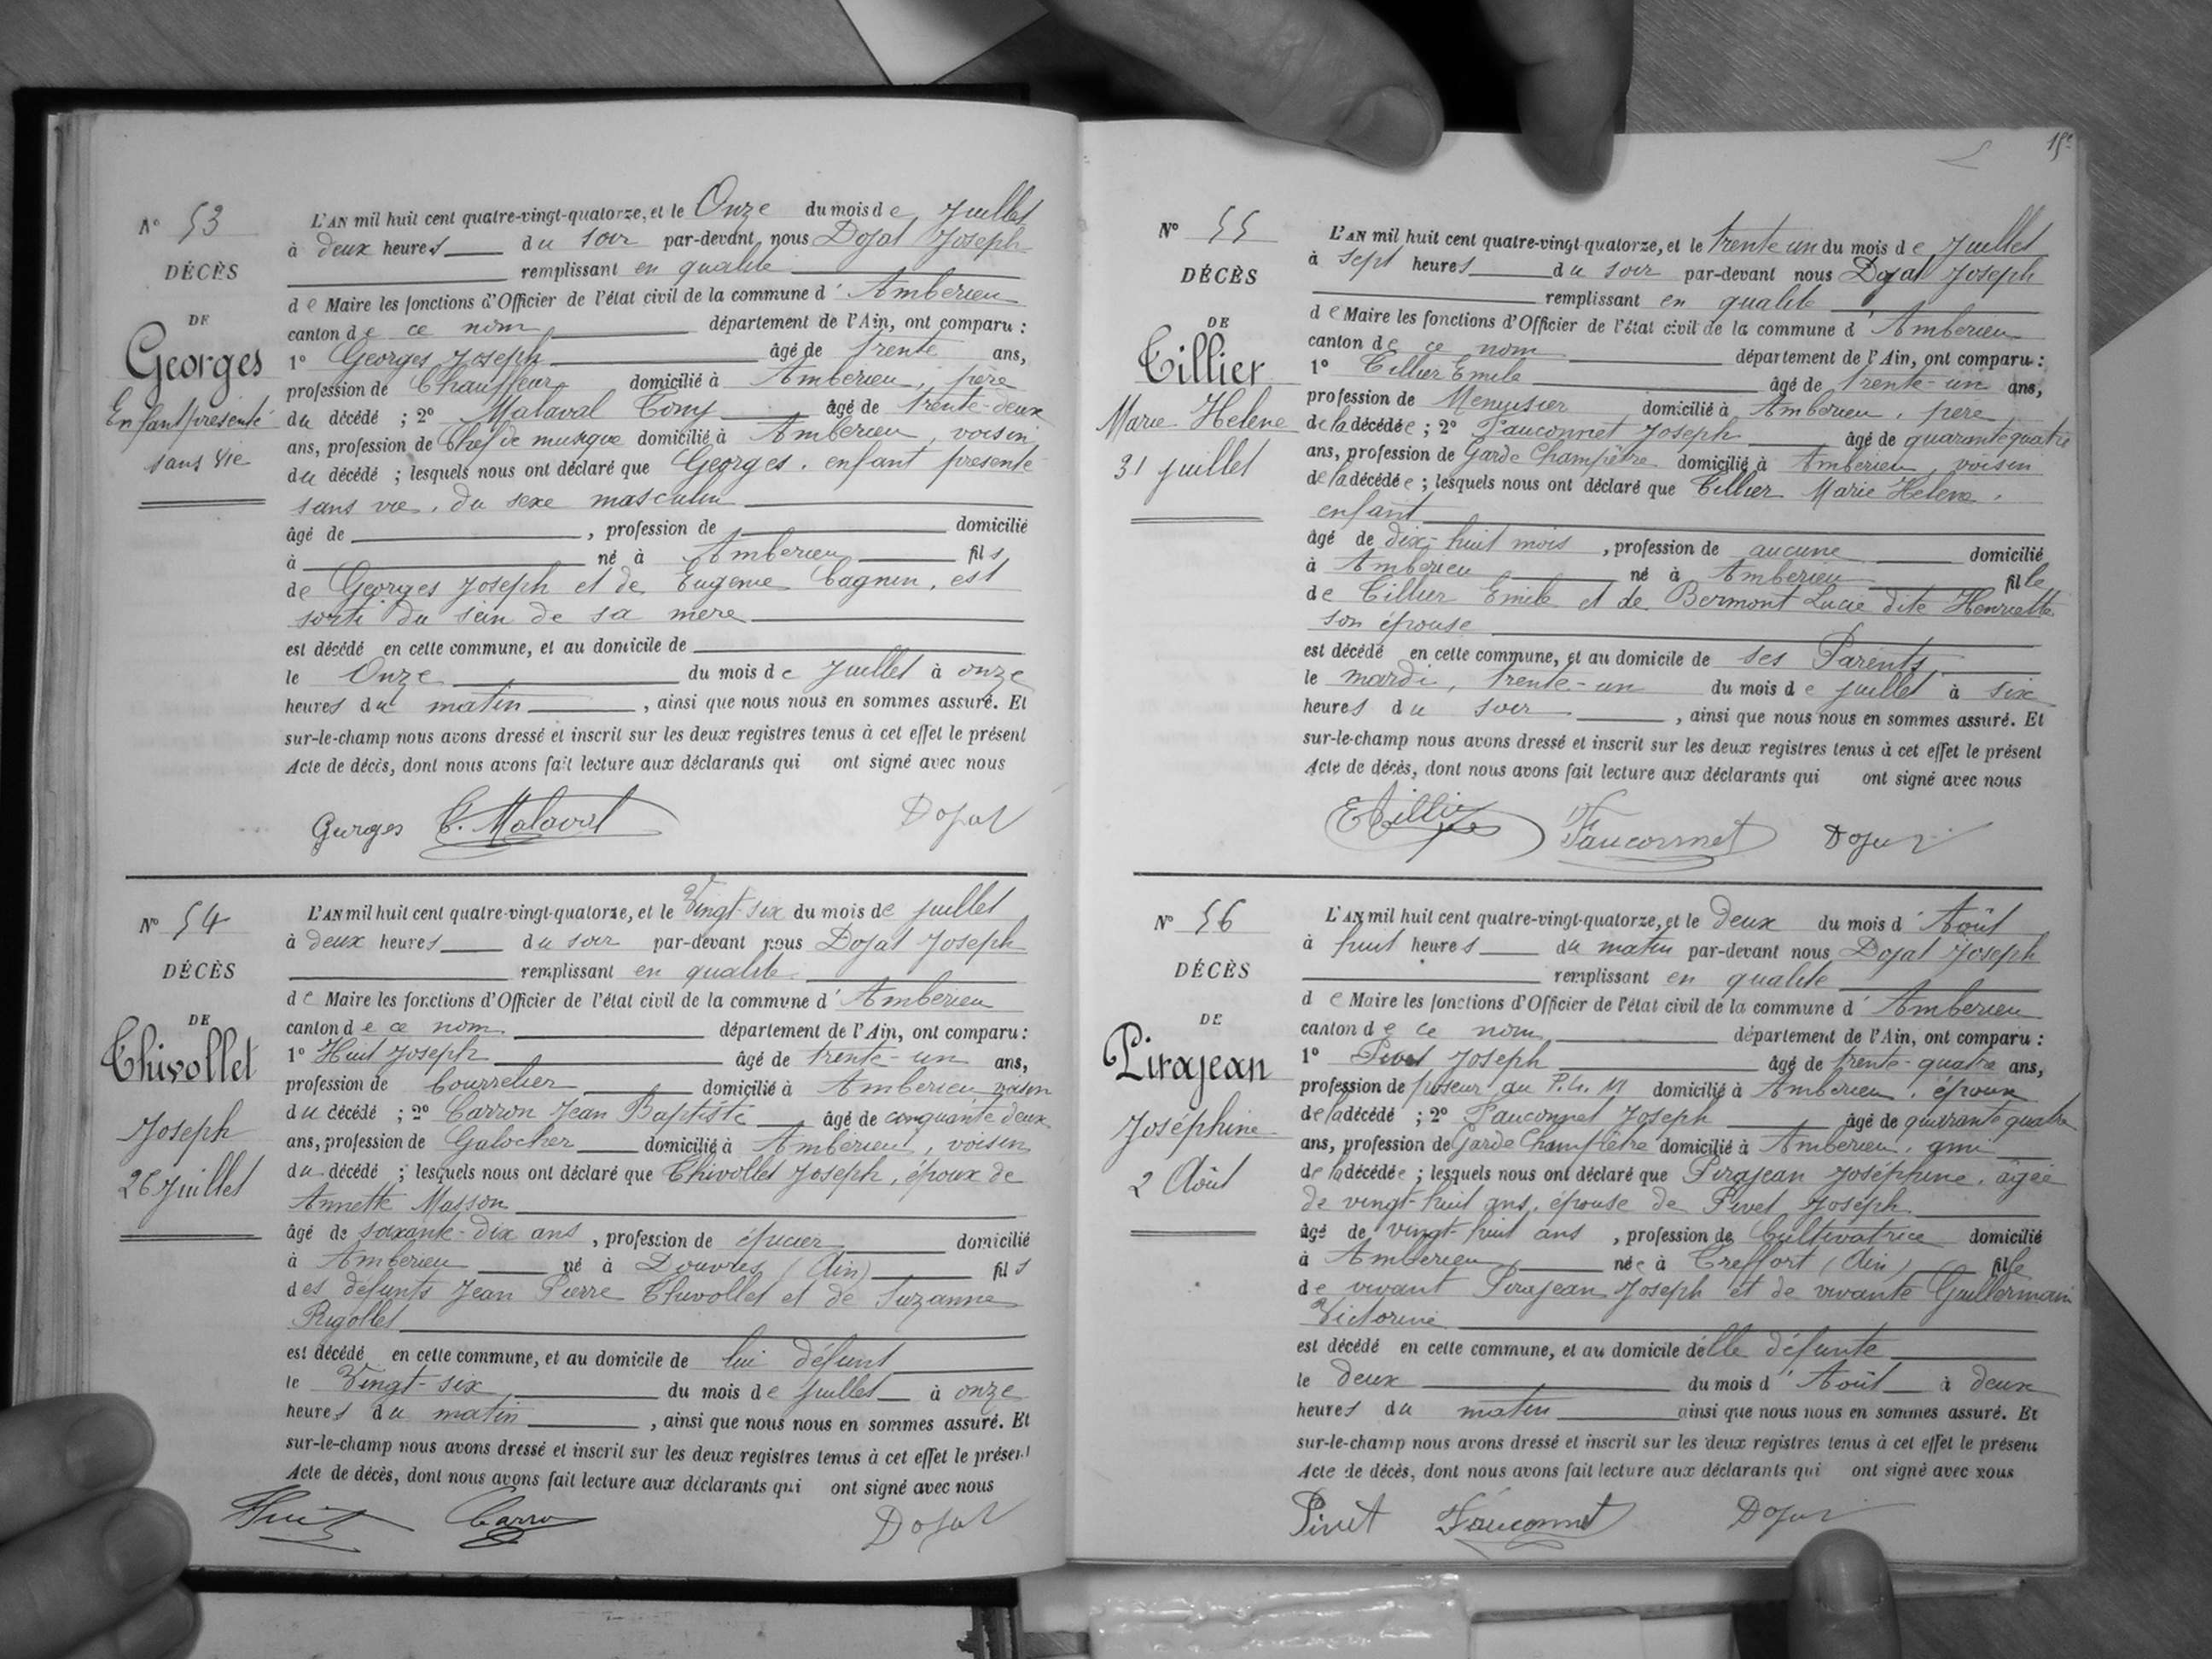 N° 53
DÉCÈS
DE
Georges
Enfant présenté
sans vie
L'AN mil huit cent quatre-vingt-quatorze, et le Onze du mois de Juillet
à deux heures du soir par-devant nous Dojat Joseph
remplissant en qualité
de Maire les fonctions d'Officier de l'état civil de la commune d'Ambérieu
canton de ce nom département de l'Ain, ont comparu :
1° Georges Joseph âgé de trente ans,
profession de Chauffeur domicilié à Ambérieu, père
du décédé ; 2° Malaval Tony âgé de trente-deux
ans, profession de Chef de musique domicilié à Ambérieu, voisin
du décédé ; lesquels nous ont déclaré que Georges, enfant présenté
sans vie, du sexe masculin
âgé de , profession de domicilié
à né à Ambérieu fils
de Georges Joseph et de Eugenie Cagnin, est
sorti du sein de sa mère
est décédé en cette commune, et au domicile de
le Onze du mois de Juillet à onze
heures du matin , ainsi que nous nous en sommes assuré. Et
sur-le-champ nous avons dressé et inscrit sur les deux registres tenus à cet effet le présent
Acte de décès, dont nous avons fait lecture aux déclarants qui ont signé avec nous
Georges T. Malaval Dojat
N° 54
DÉCÈS
DE
Thivollet
Joseph
26 Juillet
L'AN mil huit cent quatre-vingt-quatorze, et le Vingt-six du mois de juillet
à deux heures du soir par-devant nous Dojat Joseph
remplissant en qualité
de Maire les fonctions d'Officier de l'état civil de la commune d'Ambérieu
canton de ce nom département de l'Ain, ont comparu :
1° Huit Joseph âgé de trente-un ans,
profession de Bourrelier domicilié à Ambérieu voisin
du décédé ; 2° Carron Jean Baptiste âgé de cinquante deux
ans, profession de Galocher domicilié à Ambérieu, voisin
du décédé ; lesquels nous ont déclaré que Thivollet Joseph, époux de
Annette Masson
âgé de soixante-dix ans , profession de épicier domicilié
à Ambérieu né à Douvres (Ain) fils
des défunts Jean Pierre Thivollet et de Suzanne
Rigollet
est décédé en cette commune, et au domicile de lui défunt
le Vingt-six du mois de juillet à onze
heures du matin , ainsi que nous nous en sommes assuré. Et
sur-le-champ nous avons dressé et inscrit sur les deux registres tenus à cet effet le présent
Acte de décès, dont nous avons fait lecture aux déclarants qui ont signé avec nous
Huit Carron Dojat
N° 55
DÉCÈS
DE
Tillier
Marie Helene
31 juillet
L'AN mil huit cent quatre-vingt-quatorze, et le trente un du mois de Juillet
à sept heures du soir par-devant nous Dojat Joseph
remplissant en qualité
de Maire les fonctions d'Officier de l'état civil de la commune d'Ambérieu
canton de ce nom département de l'Ain, ont comparu :
1° Tillier Emile âgé de trente-un ans,
profession de Menuisier domicilié à Ambérieu, père
de la décédée ; 2° Fauconnet Joseph âgé de quarante quatre
ans, profession de Garde Champêtre domicilié à Ambérieu, voisin
de la décédée ; lesquels nous ont déclaré que Tillier Marie Helene,
enfant
âgé de dix-huit mois , profession de aucune domicilié
à Ambérieu né à Ambérieu fille
de Tillier Emile et de Bermont Lucie dite Henriette
son épouse
est décédé en cette commune, et au domicile de ses Parents
le mardi, trente-un du mois de juillet à six
heures du soir , ainsi que nous nous en sommes assuré. Et
sur-le-champ nous avons dressé et inscrit sur les deux registres tenus à cet effet le présent
Acte de décès, dont nous avons fait lecture aux déclarants qui ont signé avec nous
E Tillier Fauconnet Dojat
N° 56
DÉCÈS
DE
Pirajean
Joséphine
2 Août
L'AN mil huit cent quatre-vingt-quatorze, et le deux du mois d'Août
à huit heures du matin par-devant nous Dojat Joseph
remplissant en qualité
de Maire les fonctions d'Officier de l'état civil de la commune d'Ambérieu
canton de ce nom département de l'Ain, ont comparu :
1° Pivet Joseph âgé de trente-quatre ans,
profession de poseur au P.L.M domicilié à Ambérieu, époux
de la décédé ; 2° Fauconnet Joseph âgé de quarante quatre
ans, profession de Garde Champêtre domicilié à Ambérieu, ami
de la décédée ; lesquels nous ont déclaré que Pirajean Joséphine, âgée
de vingt-huit ans, épouse de Pivet Joseph
âgé de vingt-huit ans , profession de Cultivatrice domicilié
à Ambérieu née à Treffort (Ain) fille
de vivant Pirajean Joseph et de vivante Guillermain
Victorine
est décédé en cette commune, et au domicile d'elle défunte
le deux du mois d'Août à deux
heures du matin ainsi que nous nous en sommes assuré. Et
sur-le-champ nous avons dressé et inscrit sur les deux registres tenus à cet effet le présent
Acte de décès, dont nous avons fait lecture aux déclarants qui ont signé avec nous
Pivet Fauconnet Dojat